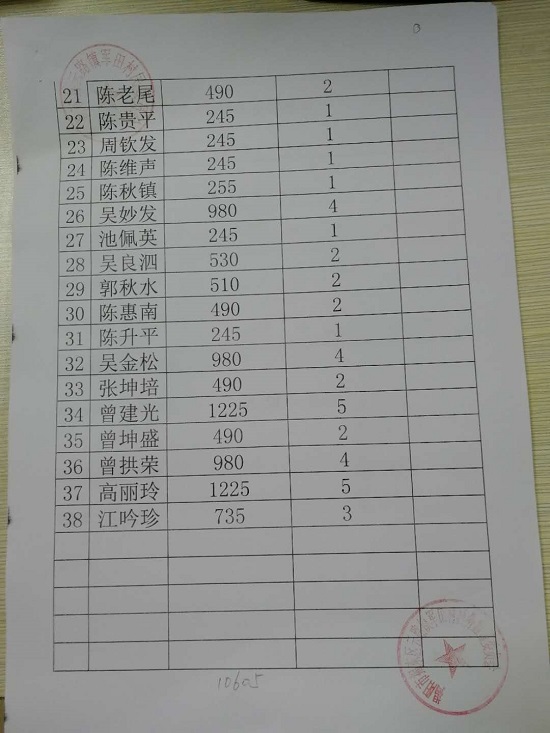 21 陈老尾 490 2
22 陈贵平 245 1
23 周钦发 245 1
24 陈维声 245 1
25 陈秋镇 255 1
26 吴妙发 980 4
27 池佩英 245 1
28 吴良泗 530 2
29 郭秋水 510 2
30 陈惠南 490 2
31 陈升平 245 1
32 吴金松 980 4
33 张坤培 490 2
34 曾建光 1225 5
35 曾坤盛 490 2
36 曾拱荣 980 4
37 高丽玲 1225 5
38 江吟珍 735 3
10605